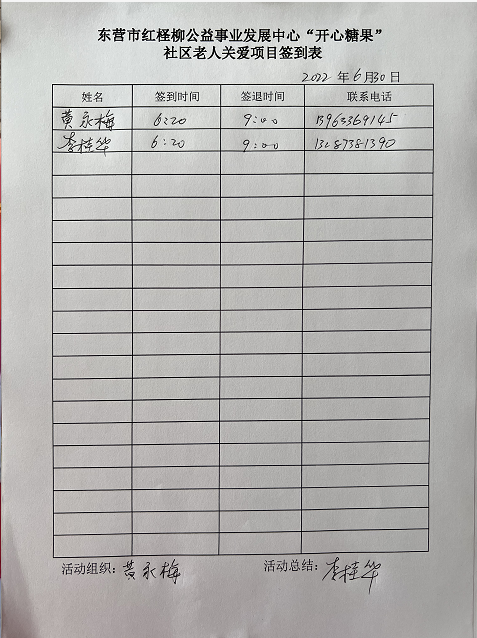 东营市红柽柳公益事业发展中心“开心糖果”
社区老人关爱项目签到表
2022 年 6 月 30 日
姓名 签到时间 签退时间 联系电话
黄永梅 6:20 9:00 13963369145
李桂华 6:20 9:00
活动组织：黄永梅 活动总结：李桂华